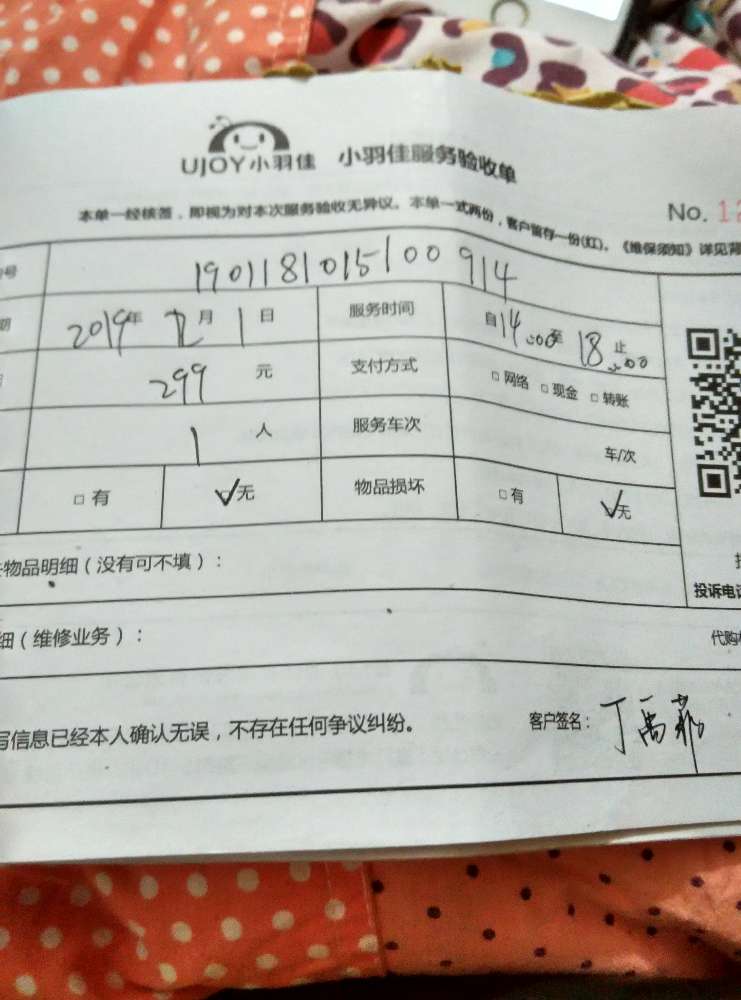 UJOY小羽佳 小羽佳服务验收单
本单一经核签，即视为对本次服务验收无异议。本单一式两份，客户留存一份(红)。《维保须知》详见背
No. 12
号 1901181015100914
期 2019年 12月 1日 服务时间 自14:00至 18:00止
299 元 支付方式 □网络 □现金 □转账
1 人 服务车次 车/次
□有 ☑无 物品损坏 □有 ☑无
物品明细（没有可不填）：
投诉电话
细（维修业务）： 代购
写信息已经本人确认无误，不存在任何争议纠纷。 客户签名：丁禹菲